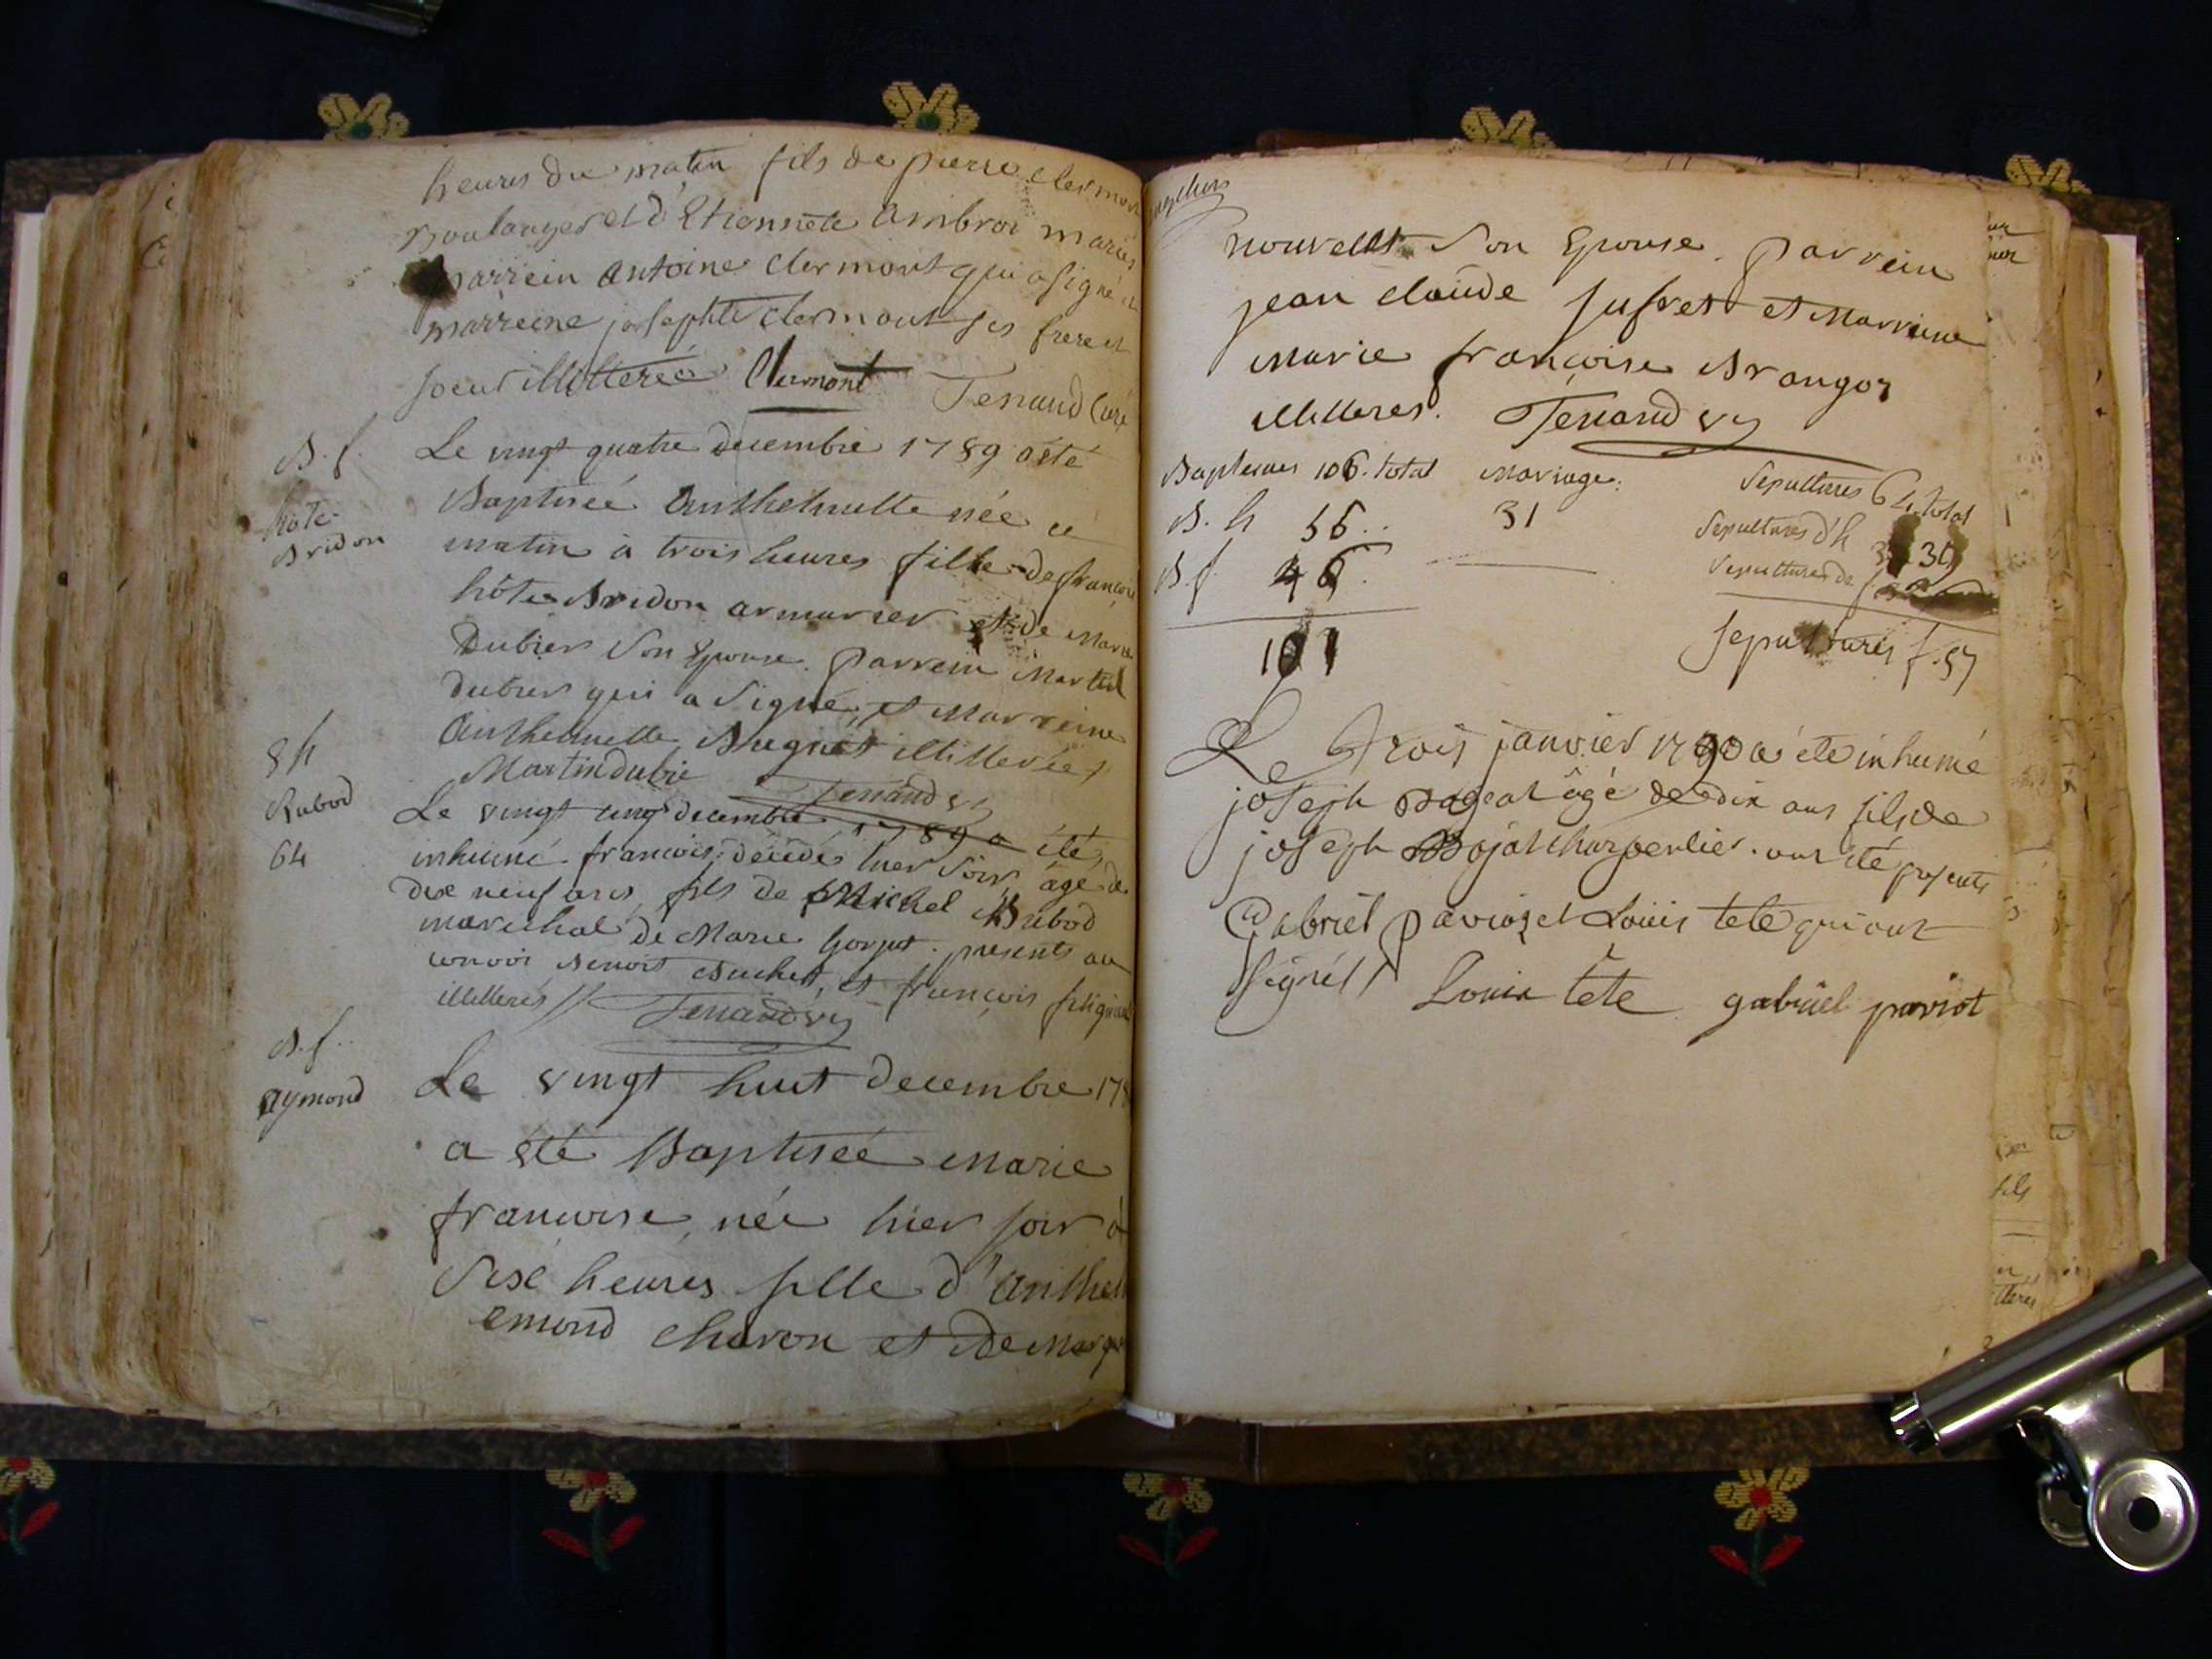 heures du matin fils de pierre clermon
Boulanger et d'Etiennete Ambroi mariés
parrein antoine clermont qui a signé et
marreine josephte clermont ses frere et
soeur illitteré Clermont Tenaud Curé
B. f. Le vingt quatre decembre 1789 a été
Baptisée Anthelmette née ce
hôte
Bridon
matin à trois heures fille de françois
hôte Bridon armurier et de Marie
Dubier son Epouse. parrein Martin
dubier qui a signé, et Marreine
Anthelmette Buguet illitterée
Martin dubie Tenaud
S h
Rubod
64
Le vingt cinq decembre 1789 a été
inhumé francois, décédé hier soir âgé de
dix neuf ans, fils de Michel Rubod
marechal de Marie Gorjut. presents au
convoi Benoit Buchet, et françois
illitterés // Tenaud
B. f.
aymond
Le vingt huit decembre 17
a été Baptisée Marie
francoise, née hier soir à
sixe heures fille d'Anthel
emond charon et de Marg
nouvellet son Epouse. parrein
jean claude jufret et Marreine
Marie françoise Brangor
illitteres. Tenaud
Baptemes 106. total Mariage: Sepultures 64. total
B. h 56.. 31 Sepultures d'h 39
B. f. 46. Sepultures de f
101 sepultures f. 57
Le trois janvier 1790 a été inhumé
joseph Bageat âgé de dix ans fils de
joseph Bajat charpentier. ont été presents
Gabriel paviot et Louis tete qui ont
signés / Louis tête gabriel paviot